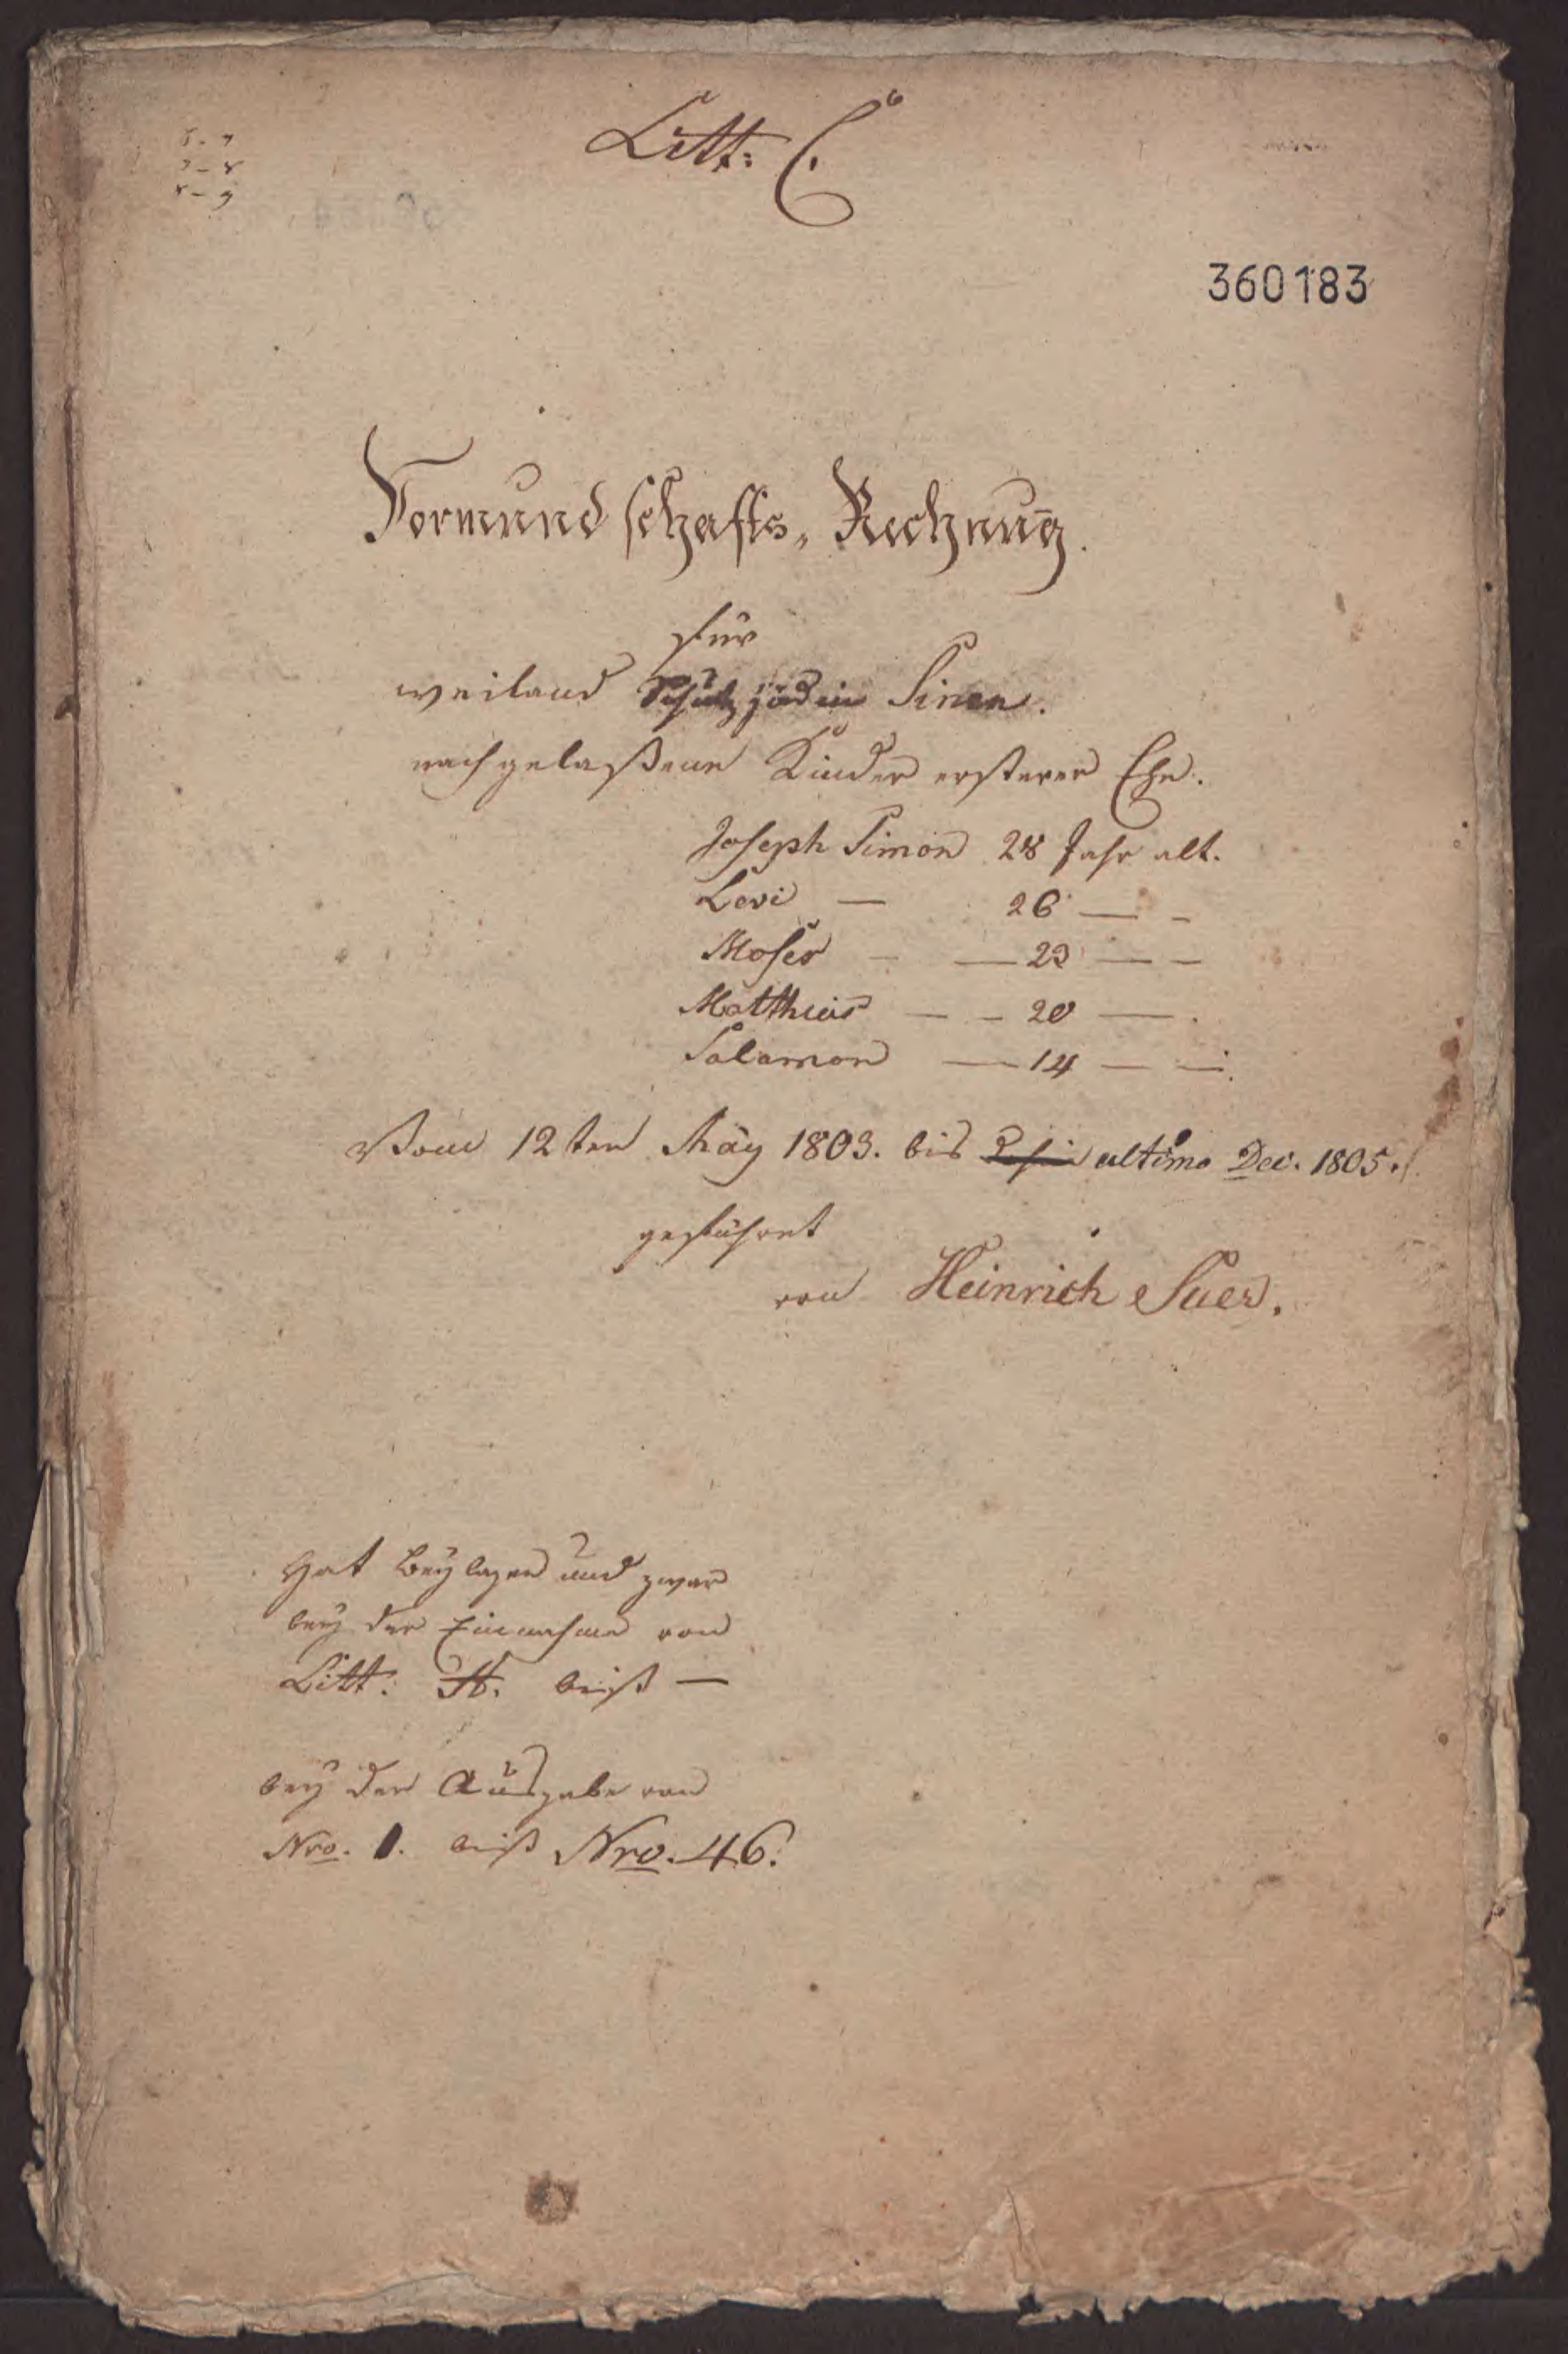 Litt: C.
6-7
7-8
8-9
360183
Vormundschafts-Rechnung.
für
weiland Schutzjüdin Simon.
nachgelaßene Kinder ersterer Ehe.
Joseph Simon 28 Jahr alt.
Levi — 26 — -
Moses - — 23 — -
Matthias — - 20 — .
Salamon — 14 — —.
Vom 12ten May 1803. bis ultimo Dec. 1805.
geführet
von Heinrich Suer.
Hat Beylagen und zwar
bey der Einnahme von
Litt: A. biß —
bey der Ausgabe von
Nro. 1. biß Nro. 46.